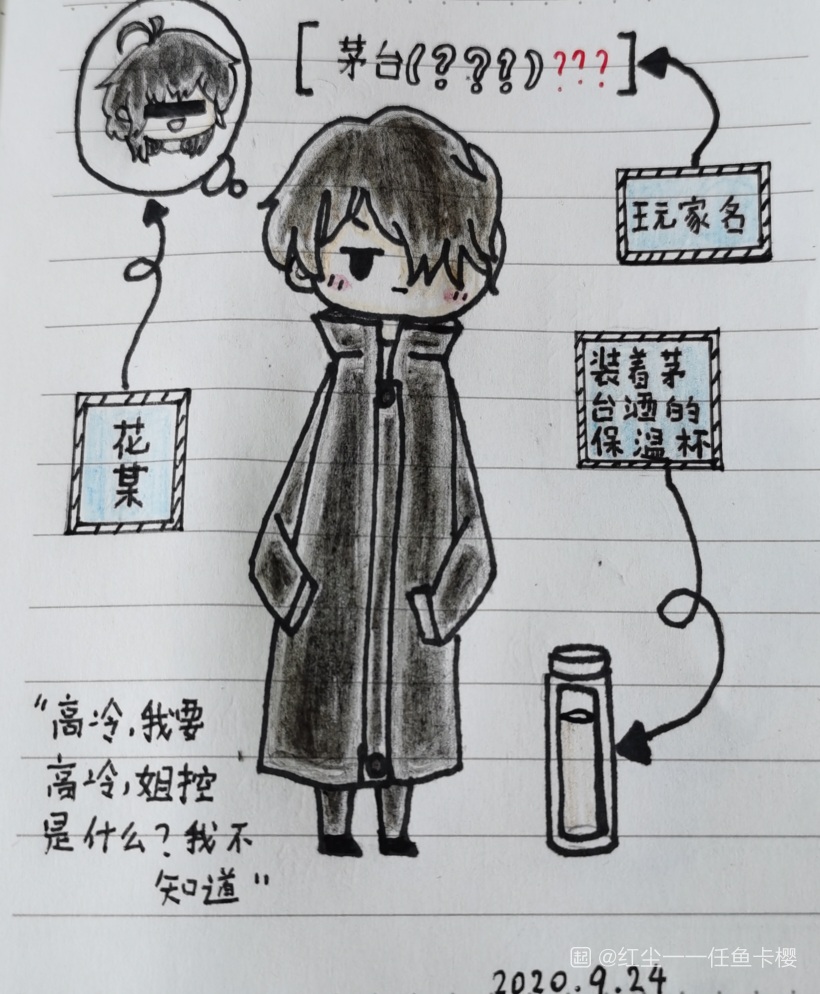 [ 茅台(???)??? ]
玩家名
装着茅
台酒的
保温杯
花
某
“高冷,我要
高冷,姐控
是什么?我不
知道”
2020.9.24
@红尘一一任鱼卡樱